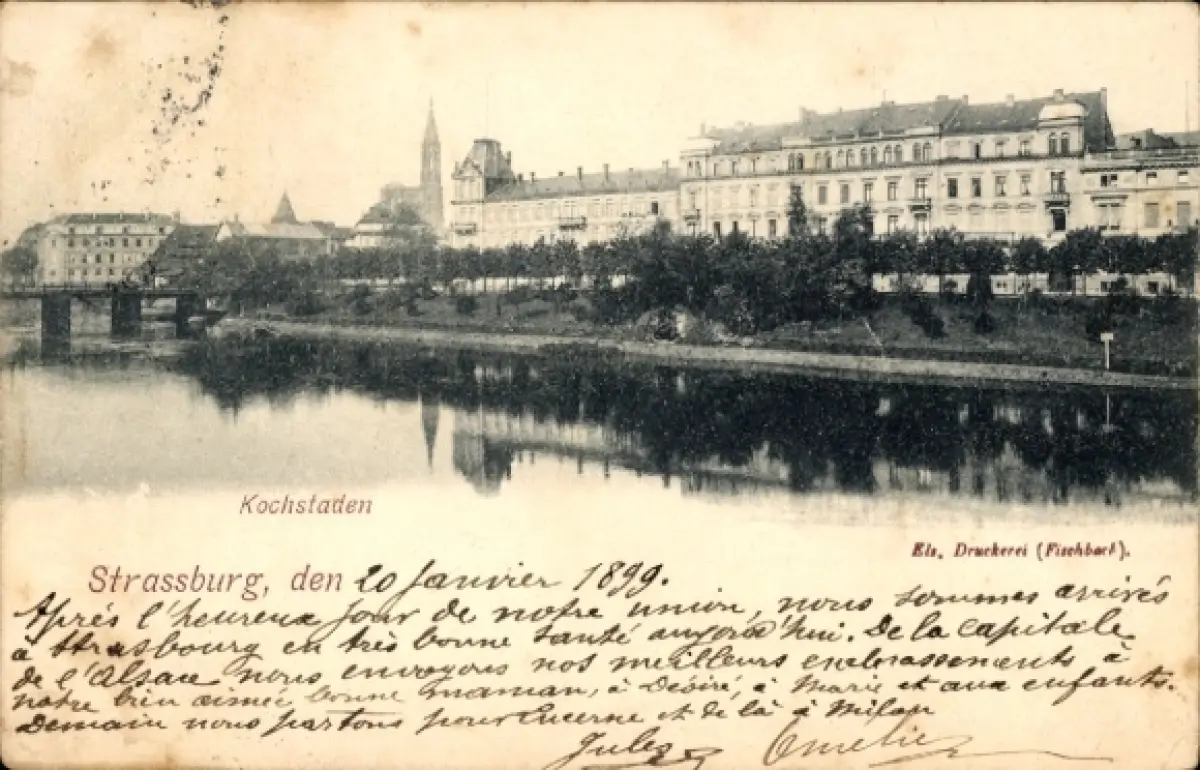 Kochstaden
Els. Druckerei (Fischbach).
Strassburg, den 20 Janvier 1899.
Après l'heureux jour de notre union, nous sommes arrivés
à Strasbourg en très bonne santé aujord'hui. De la capitale
de l'Alsace nous envoyons nos meilleurs embrassements à
notre bien aimée bonne maman, à Désiré, à Marie et aux enfants.
Demain nous partons pour Lucerne et de là à Milan
Jules Amélie